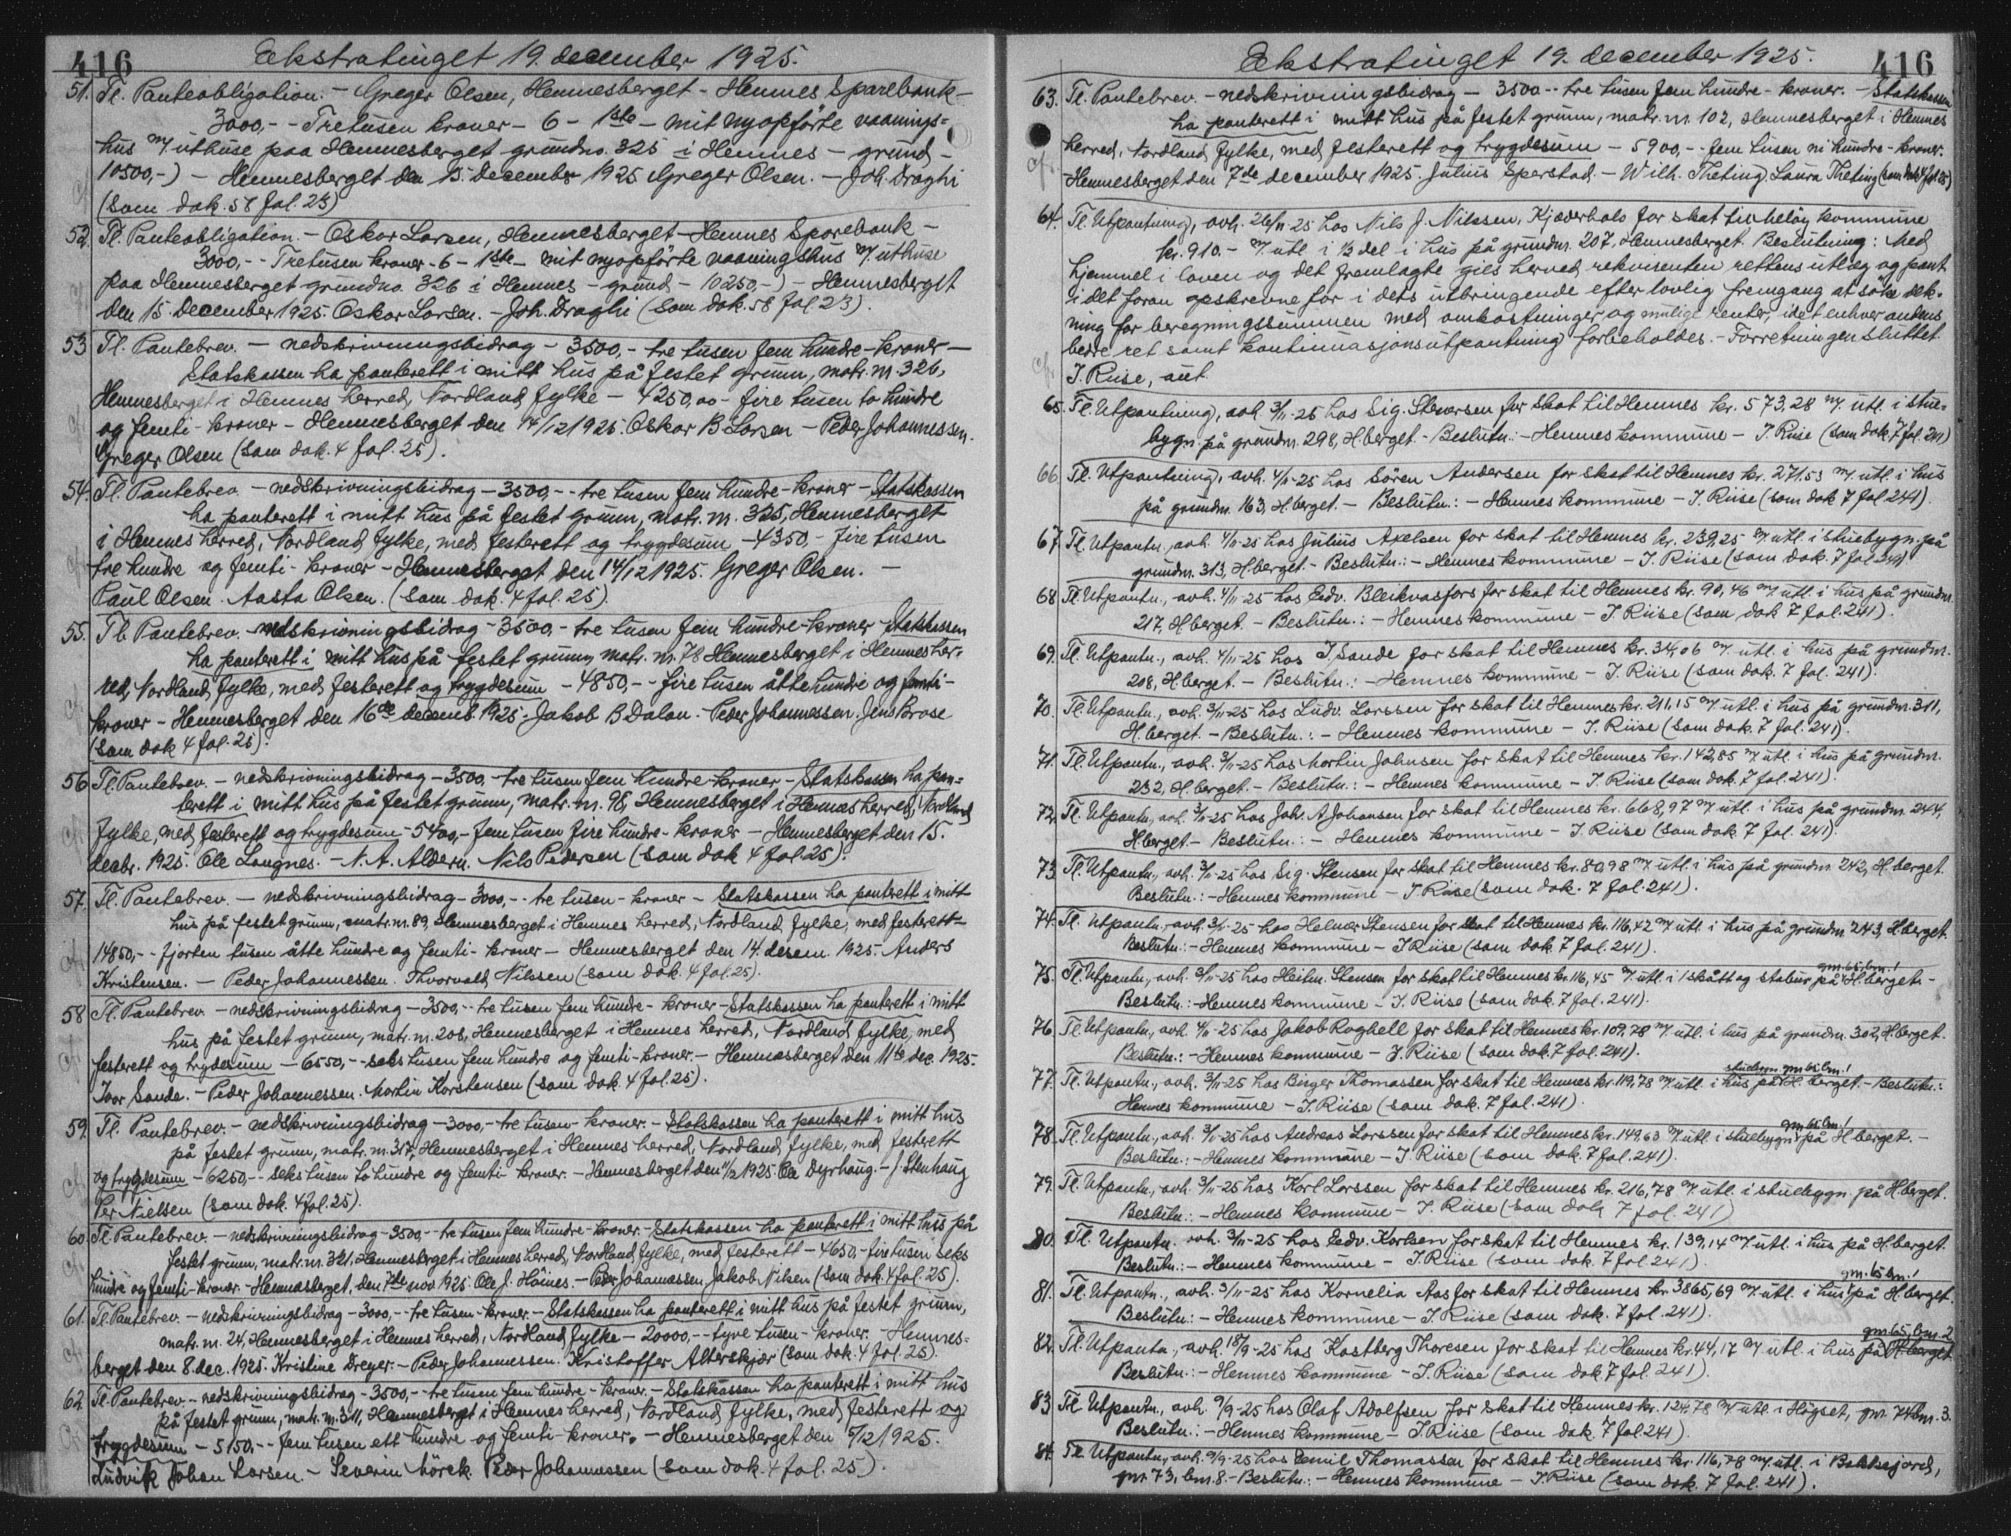 416 Ekstratinget 19. december 1925.
51. Tl. Panteobligation: - Greger Olsen, Hemnesberget - Hemnes Sparebank -
3000,- - Tretusen kroner - 6 - 1ste - mit nyopførte vaanings-
hus m/ uthuse paa Hemnesberget grundno. 325 i Hemnes - grund -
10500,-) - Hemnesberget den 15 december 1925 Greger Olsen. - Joh. Draghi
(som dok. 58 fol. 23)
52. Tl. Panteobligation. - Oskar Larsen, Hemnesberget - Hemnes Sparebank -
3000,- - Tretusen kroner - 6 - 1ste - mit nyopførte vaaningshus m/ uthuse
paa Hemnesberget grundno. 326 i Hemnes - grund - 10250,-) - Hemnesberget
den 15. december 1925. Oskar Larsen. - Joh. Draghi (som dok. 58 fol 23).
53 Tl. Pantebrev. - nedskrivningsbidrag - 3500,- tre tusen fem hundre - kroner -
Statskassen ha panterett i mitt hus på festet grunn, matr. nr. 326,
Hemnesberget i Hemnes herred, Nordland fylke - 4250,00 - fire tusen to hundre
og femti - kroner - Hemnesberget den 14/12 1925. Oskar B Larsen - Peder Johannessen.
Greger Olsen (som dok. 4 fol. 25).
54. Tl. Pantebrev. - nedskrivningsbidrag - 3500,- - tre tusen fem hundre - kroner - Statskassen
ha panterett i mitt hus på festet grunn, matr. nr. 325, Hemnesberget
i Hemnes herred, Nordland fylke, med festerett og trygdesum - 4350,- fire tusen
tre hundre og femti - kroner - Hemnesberget den 14/12 1925. Greger Olsen. -
Paul Olsen. Aasta Olsen. (som dok. 4 fol. 25).
55. Tl. Pantebrev. - nedskrivningsbidrag - 3500,- tre tusen fem hundre - kroner - Statskassen
ha panterett i mitt hus på festet grunn matr. nr. 78 Hemnesberget i Hemnes her-
red, Nordland fylke, med festerett og trygdesum - 4850,- - fire tusen åttehundre og femti -
kroner - Hemnesberget den 16de decemb. 1925. Jakob B Dalan. Peder Johannessen. Jens Brose
(som dok 4 fol. 25).
56 Tl. Pantebrev. - nedskrivningsbidrag - 3500,- tre tusen fem hundre - kroner - Statskassen ha pan-
terett i mitt hus på festet grunn, matr. nr. 98, Hemnesberget i Hemnes herred, Nordland
fylke, med festerett og trygdesum - 5400,- fem tusen fire hundre - kroner - Hemnesberget den 15.
decbr. 1925. Ole Langnes. - N. A. Aldern. Nils Pedersen (som dok 4 fol 25).
57. Tl. Pantebrev. - nedskrivningsbidrag - 3000,- - tre tusen - kroner - Statskassen ha panterett i mitt
hus på festet grunn, matr. nr. 89, Hemnesberget i Hemnes herred, Nordland fylke, med festerett -
14850,- - fjorten tusen åtte hundre og femti - kroner - Hemnesberget den 14. desem. 1925. Anders
Kristensen. - Peder Johannessen. Thorvald Nilssen (som dok. 4 fol. 25).
58 Tl. Pantebrev. - nedskrivningsbidrag - 3500,- - tre tusen fem hundre - kroner - Statskassen ha panterett i mitt
hus på festet grunn, matr. nr. 208, Hemnesberget i Hemnes herred, Nordland fylke, med
festerett og trydesum - 6550,- - seks tusen fem hundre og femti - kroner. - Hemnesberget den 11te dec. 1925.
Ivar Sande. - Peder Johannessen. Martin Karstensen (som dok. 4 fol. 25).
59. Tl. Pantebrev. - nedskrivningsbidrag - 3000,- - tre tusen - kroner. - Statskassen ha panterett i mitt hus
på festet grunn, matr. nr. 317, Hemnesberget i Hemnes herred, Nordland fylke, med festerett
og trygdesum - 6250,- - seks tusen to hundre og femti - kroner. - Hemnesberget den 11/12 1925. Ole Dyrhaug. - J Stenhaug
Per Nielsen (som dok. 4 fol. 25).
60. Tl. Pantebrev. - nedskrivningsbidrag - 3500,- - tre tusen fem hundre - kroner. - Statskassen ha panterett i mitt hus på
festet grunn, matr. nr. 321, Hemnesberget i Hemnes herred, Nordland fylke, med festerett - 4650,- fire tusen seks
hundre og femti - kroner. - Hemnesberget, den 7de nov 1925 Ole J. Høines. - Peder Johannessen Jakob Nilsen (som dok. 4 fol. 25).
61. Tl. Pantebrev. - nedskrivningsbidrag - 3000,- - tre tusen - kroner. - Statskassen ha panterett i mitt hus på festet grunn,
matr. nr. 24, Hemnesberget i Hemnes herred, Nordland fylke - 20000,- - tyve tusen - kroner. - Hemnes-
berget den 8 dec. 1925. Kristine Dreyer. - Peder Johannessen. Kristoffer Alterskjær (som dok. 4 fol. 25).
62 Tl. Pantebrev. - nedskrivningsbidrag - 3500,- - tre tusen fem hundre - kroner. - Statskassen ha panterett i mitt hus
på festet grunn, matr. nr. 311, Hemnesberget i Hemnes herred, Nordland fylke, med festerett og
trygdesum - 5150,- - fem tusen ett hundre og femti - kroner. - Hemnesberget den 5/12 1925.
Ludvik Johan Larsen. - Severin Mörch. Peder Johannessen (som dok. 4 fol. 25).
Ekstratinget 19. december 1925. 416
63. Tl. Pantebrev. - nedskrivningsbidrag - 3500 - - tre tusen fem hundre - kroner. - Statskassen
ha panterett i mitt hus på festet grunn, matr. nr. 102, Hemnesberget i Hemnes
herred, Nordland fylke, med festerett og trygdesum - 5900,- - fem tusen ni hundre - kroner.
Hemnesberget den 7de december 1925. Julius Sperstad. - Wilh. Theting. Laura Theting (som dok 4 fol 25)
64. Tl. Utpantning, avh. 26/11-25 hos Nils J. Nilssen, Kjæderhals for skat til Meløy kommune
kr. 910.- m/ utl. i 1/3 del i hus på grundnr. 207, Hemnesberget. Beslutning: Med
hjemmel i loven og det fremlagte gies herved rekvirenten rettens utlæg og pant
i det foran beskrevne for i dets utbringende efter lovlig fremgang at søke dek-
ning for beregningssummen med omkostninger og mulige renter, idet enhver andens
bedre ret samt kontinuasjonsutpantning forbeholdes. - Forretningen sluttet.
J. Riise, aut.
65. Tl. Utpantning, avh. 3/11-25 hos Sig. Stenersen for skat til Hemnes kr. 573,28 m/. utl. i stue-
bygn. på grundnr. 298, H.berget - Beslutn.: - Hemnes kommune - J. Riise (som dok. 7 fol. 241)
66. Tl. Utpantning, avh. 4/11-25 hos Sören Andersen for skat til Hemnes kr. 271.53 m/ utl. i hus
på grundnr. 163, H.berget. - Beslutn.: - Hemnes kommune - J. Riise (som dok 7 fol 241).
67. Tl. Utpantn., avh. 4/11-25 hos Julius Axelsen for skat til Hemnes kr. 239,25 m/ utl. i stuebygn. på
grundnr. 313, H.berget. - Beslutn.: - Hemnes kommune - J. Riise (som dok. 7 fol 241)
68 Tl. Utpantn., avh. 4/11-25 hos Edv. Bleikvasfors for skat til Hemnes kr. 90,46 m/ utl. i hus på grundnr.
217, H.berget. - Beslutn.: - Hemnes kommune - J. Riise (som dok 7 fol. 241).
69. Tl. Utpantn., avh. 4/11-25 hos J. Sande for skat til Hemnes kr. 34,06 m/. utl. i hus på grundnr.
208, H.berget. - Beslutn.: - Hemnes kommune - J. Riise (som dok. 7 fol. 241).
70. Tl. Utpantn., avh. 3/11-25 hos Ludv. Larssen for skat til Hemnes kr. 211,15 m/ utl. i hus på grundnr. 311,
H.berget. - Beslutn.: - Hemnes kommune - J. Riise (som dok. 7 fol. 241).
71. Tl. Utpantn., avh. 3/11-25 hos Martin Johnsen for skat til Hemnes kr. 142,85 m/ utl. i hus på grundnr.
232, H.berget. - Beslutn.: - Hemnes kommune - J. Riise (som dok. 7 fol. 241).
72. Tl. Utpantn., avh. 3/11-25 hos Johs. A Johansen for skat til Hemnes kr. 668,97 m/ utl. i hus på grundnr. 244,
H.berget. - Beslutn.: - Hemnes kommune - J. Riise (som dok 7 fol. 241).
73 Tl. Utpantn., avh. 3/11-25 hos Sig. Stensen for skat til Hemnes kr. 80,98 m/ utl. i hus på grundnr 242, H.berget.
Beslutn.: - Hemnes kommune - J Riise (som dok. 7 fol. 241).
74. Tl. Utpantn., avh. 3/11-25 hos Helmer Stensen for skat til Hemnes kr. 116,42 m/ utl. i hus på grundnr 243, H.berget.
Beslutn.: - Hemnes kommune - J Riise (som dok 7 fol. 241).
gnr. 65. bnr. 1
75. Tl. Utpantn., avh. 3/11-25 hos Heitm. Stensen for skat til Hemnes kr. 116,45 m/ utl. i 1 skått og stabur på H.berget. -
Beslutn.: - Hemnes kommune - J. Riise (som dok. 7 fol. 241).
76 Tl. Utpantn., avh. 4/11-25 hos Jakob Roghell for skat til Hemnes kr. 109,78 m/ utl. i hus på grundnr. 302, H.berget.
Beslutn.: - Hemnes kommune - J. Riise (som dok. 7 fol. 241).
stuebygn gnr. 65 bnr. 1
77. Tl. Utpantn., avh. 3/11-25 hos Birger Thomassen for skat til Hemnes kr. 119,78 m/ utl. i hus på H.berget. - Beslutn.:
Hemnes kommune - J. Riise (som dok. 7 fol. 241).
gnr. 65 bnr. 1
78. Tl. Utpantn., avh. 3/11-25 hos Andreas Larssen for skat til Hemnes kr. 149,63 m/ utl. i stuebygn på H.berget. -
Beslutn.: - Hemnes kommune - J. Riise (som dok. 7 fol. 241).
79. Tl. Utpantn., avh. 3/11-25 hos Karl Larssen for skat til Hemnes kr. 216,78 m/. utl. i stuebygn. på H.berget.
Beslutn.: - Hemnes kommune - J. Riise (som dok 7 fol. 241)
80. Tl. Utpantn. avh. 3/11-25 hos Edv. Karlsen for skat til Hemnes kr. 139,14 m/ utl. i hus på H.berget.
Beslutn.: - Hemnes kommune - J. Riise (som dok. 7 fol. 241).
gnr. 65 bnr. 1
81. Tl. Utpantn., avh. 3/11-25 hos Kornelia Aas for skat til Hemnes kr. 3865,69 m/ utl. i hus på H.berget.
Beslutn.: - Hemnes kommune - J. Riise (som dok. 7 fol. 241).
gnr. 65, bnr. 2
82. Tl. Utpantn., avh. 18/9-25 hos Kastberg Thoresen for skat til Hemnes kr. 44,17 m/ utl. i hus på H.berget
Beslutn.: - Hemnes kommune - J. Riise (som dok 7 fol. 241).
83 Tl. Utpantn., avh. 9/9-25 hos Olaf Adolfsen for skat til Hemnes kr. 124,78 m/ utl. i Högset, gnr. 74 bnr. 3.
Beslutn.: - Hemnes kommune - J. Riise (som dok. 7 fol. 241).
84. Tl. Utpantn., avh. 9/9-25 hos Emil Thomassen for skat til Hemnes kr. 116,78 m/. utl. i
gnr. 73, bnr. 8 - Beslutn.: - Hemnes kommune - J. Riise (som dok. 7 fol. 241).